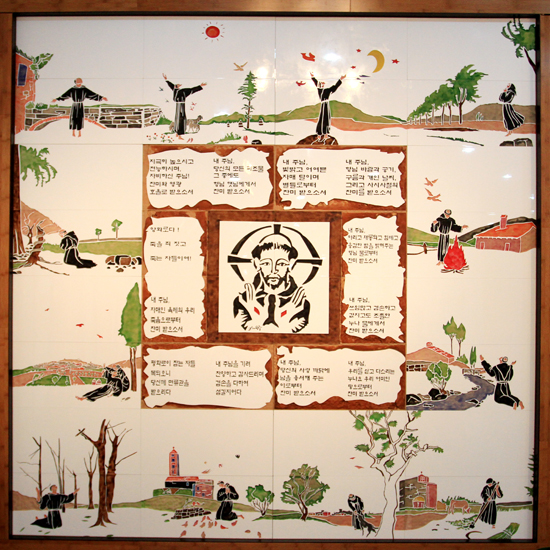 지극히 높으시고
전능하시며,
자비하신 주님!
찬미와 영광
호올로 받으소서
내 주님,
당신의 모든 피조물
그 중에도
형님 햇님에게서
찬미 받으소서
내 주님,
빛밝고 어여쁜
자매 달이며
별들로부터
찬미 받으소서
내 주님,
형님 바람과 공기,
구름과 개인 날씨,
그리고 사시사철의
찬미 받으소서
내 주님,
찬미 받으소서
내 주님,
쓰임많고 겸손하고
값지고도 조촐한
누나 물에게서
찬미 받으소서
내 주님,
우리를 싣고 다스리는
누나요 우리 어머인
땅으로부터
찬미 받으소서
내 주님,
당신의 사랑 까닭에
남을 용서해 주는
이로부터
찬미 받으소서
내 주님을 기려
찬양하고 감사드리며
겸손을 다하여
섬길지어다
평화로이 참는 자들
복되오니
당신께 면류관을
받으리라
내 주님,
자매인 육체의 우리
죽음으로부터
찬미 받으소서
죽을 죄 짓고
죽는 저들이여!